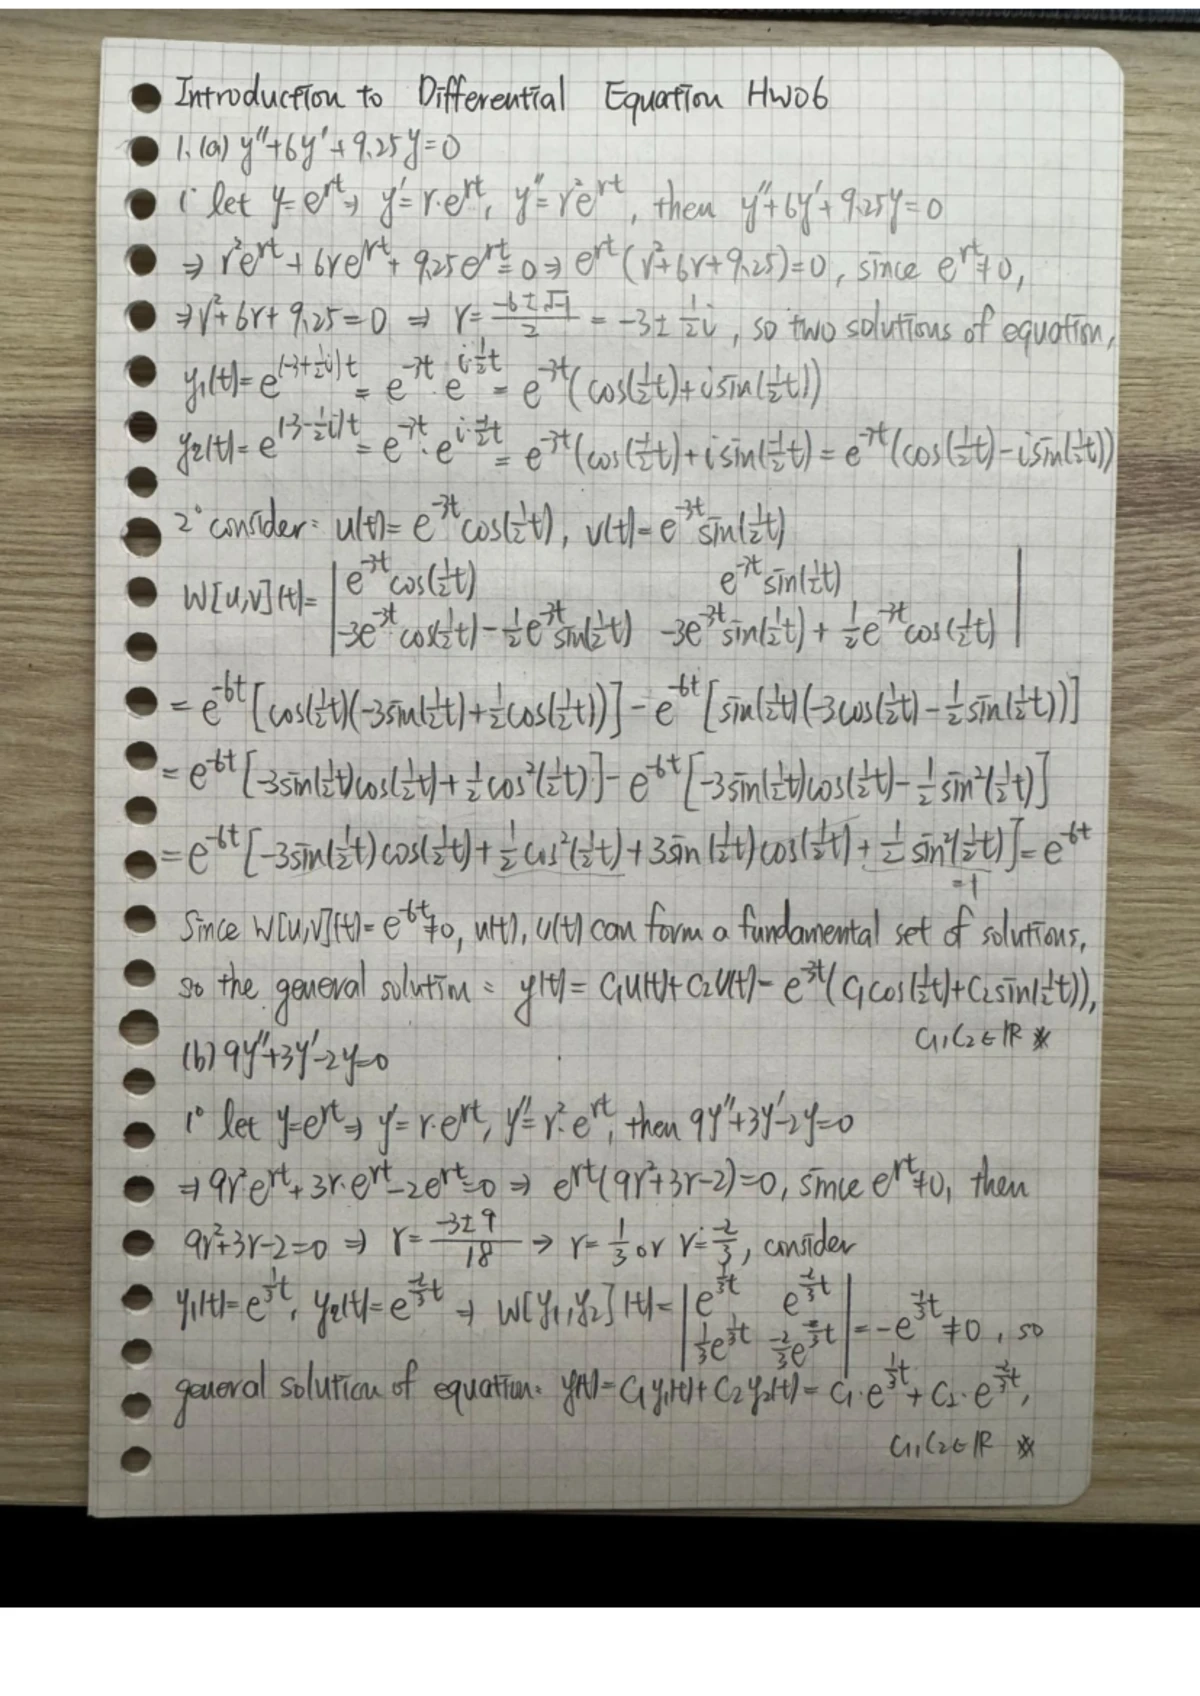 Introduction to Differential Equation HW06
1. (a) y''+6y'+9.25y=0
1° let y=e^{rt} ⇒ y'=r·e^{rt}, y''=r²e^{rt}, then y''+6y'+9.25y=0
⇒ r²e^{rt}+6re^{rt}+9.25e^{rt}=0 ⇒ e^{rt}(r²+6r+9.25)=0, since e^{rt}≠0,
⇒ r²+6r+9.25=0 ⇒ r=\frac{-6±√-1}{2} = -3±\frac{1}{2}i, so two solutions of equation,
y₁(t)=e^{(-3+\frac{1}{2}i)t} = e^{-3t}·e^{i·\frac{1}{2}t} = e^{-3t}(cos(\frac{1}{2}t)+isin(\frac{1}{2}t))
y₂(t)=e^{(-3-\frac{1}{2}i)t} = e^{-3t}·e^{i·\frac{-1}{2}t} = e^{-3t}(cos(\frac{-1}{2}t)+isin(\frac{-1}{2}t) = e^{-3t}(cos(\frac{1}{2}t)-isin(\frac{1}{2}t))
2° consider: u(t)=e^{-3t}cos(\frac{1}{2}t), v(t)=e^{-3t}sin(\frac{1}{2}t)
W[u,v](t)= | e^{-3t}cos(\frac{1}{2}t) e^{-3t}sin(\frac{1}{2}t) |
| -3e^{-3t}cos(\frac{1}{2}t)-\frac{1}{2}e^{-3t}sin(\frac{1}{2}t) -3e^{-3t}sin(\frac{1}{2}t)+\frac{1}{2}e^{-3t}cos(\frac{1}{2}t) |
= e^{-6t}[cos(\frac{1}{2}t)(-3sin(\frac{1}{2}t)+\frac{1}{2}cos(\frac{1}{2}t))] - e^{-6t}[sin(\frac{1}{2}t)(-3cos(\frac{1}{2}t)-\frac{1}{2}sin(\frac{1}{2}t))]
= e^{-6t}[-3sin(\frac{1}{2}t)cos(\frac{1}{2}t)+\frac{1}{2}cos²(\frac{1}{2}t)] - e^{-6t}[-3sin(\frac{1}{2}t)cos(\frac{1}{2}t)-\frac{1}{2}sin²(\frac{1}{2}t)]
= e^{-6t}[-3sin(\frac{1}{2}t)cos(\frac{1}{2}t)+\frac{1}{2}cos²(\frac{1}{2}t)+3sin(\frac{1}{2}t)cos(\frac{1}{2}t)+\frac{1}{2}sin²(\frac{1}{2}t)] = e^{-6t}
=1
Since W[u,v](t)=e^{-6t}≠0, u(t), v(t) can form a fundamental set of solutions,
so the general solution: y(t)=C₁u(t)+C₂v(t)=e^{-3t}(C₁cos(\frac{1}{2}t)+C₂sin(\frac{1}{2}t)),
C₁,C₂∈ℝ ※
(b) 9y''+3y'-2y=0
1° let y=e^{rt} ⇒ y'=r·e^{rt}, y''=r²·e^{rt}, then 9y''+3y'-2y=0
⇒ 9r²e^{rt}+3r·e^{rt}-2e^{rt}=0 ⇒ e^{rt}(9r²+3r-2)=0, since e^{rt}≠0, then
9r²+3r-2=0 ⇒ r=\frac{-3±9}{18} → r=\frac{1}{3} or r=\frac{-2}{3}, consider
y₁(t)=e^{\frac{1}{3}t}, y₂(t)=e^{\frac{-2}{3}t} ⇒ W[y₁,y₂](t)= | e^{\frac{1}{3}t} e^{\frac{-2}{3}t} |
| \frac{1}{3}e^{\frac{1}{3}t} \frac{-2}{3}e^{\frac{-2}{3}t} | = -e^{\frac{-1}{3}t}≠0, so
general solution of equation: y(t)=C₁y₁(t)+C₂y₂(t)=C₁·e^{\frac{1}{3}t}+C₂·e^{\frac{-2}{3}t},
C₁,C₂∈ℝ ※